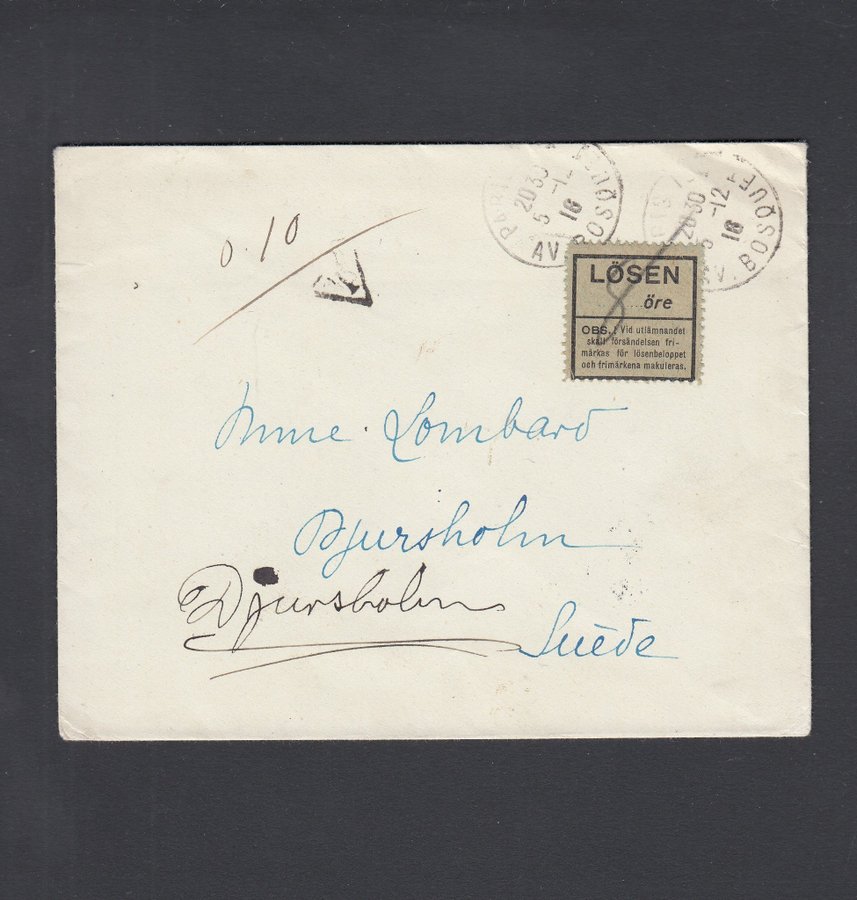 PARIS
AV. BOSQUET
20 30
5 -12
16
AV. BOSQUET
20 30
5 -12
16
0.10
T
LÖSEN
öre
OBS.! Vid utlämnandet
skall försändelsen fri-
märkas för lösenbeloppet
och frimärkena makuleras.
Mme. Lombard
Djursholm
Djursholm
Suède